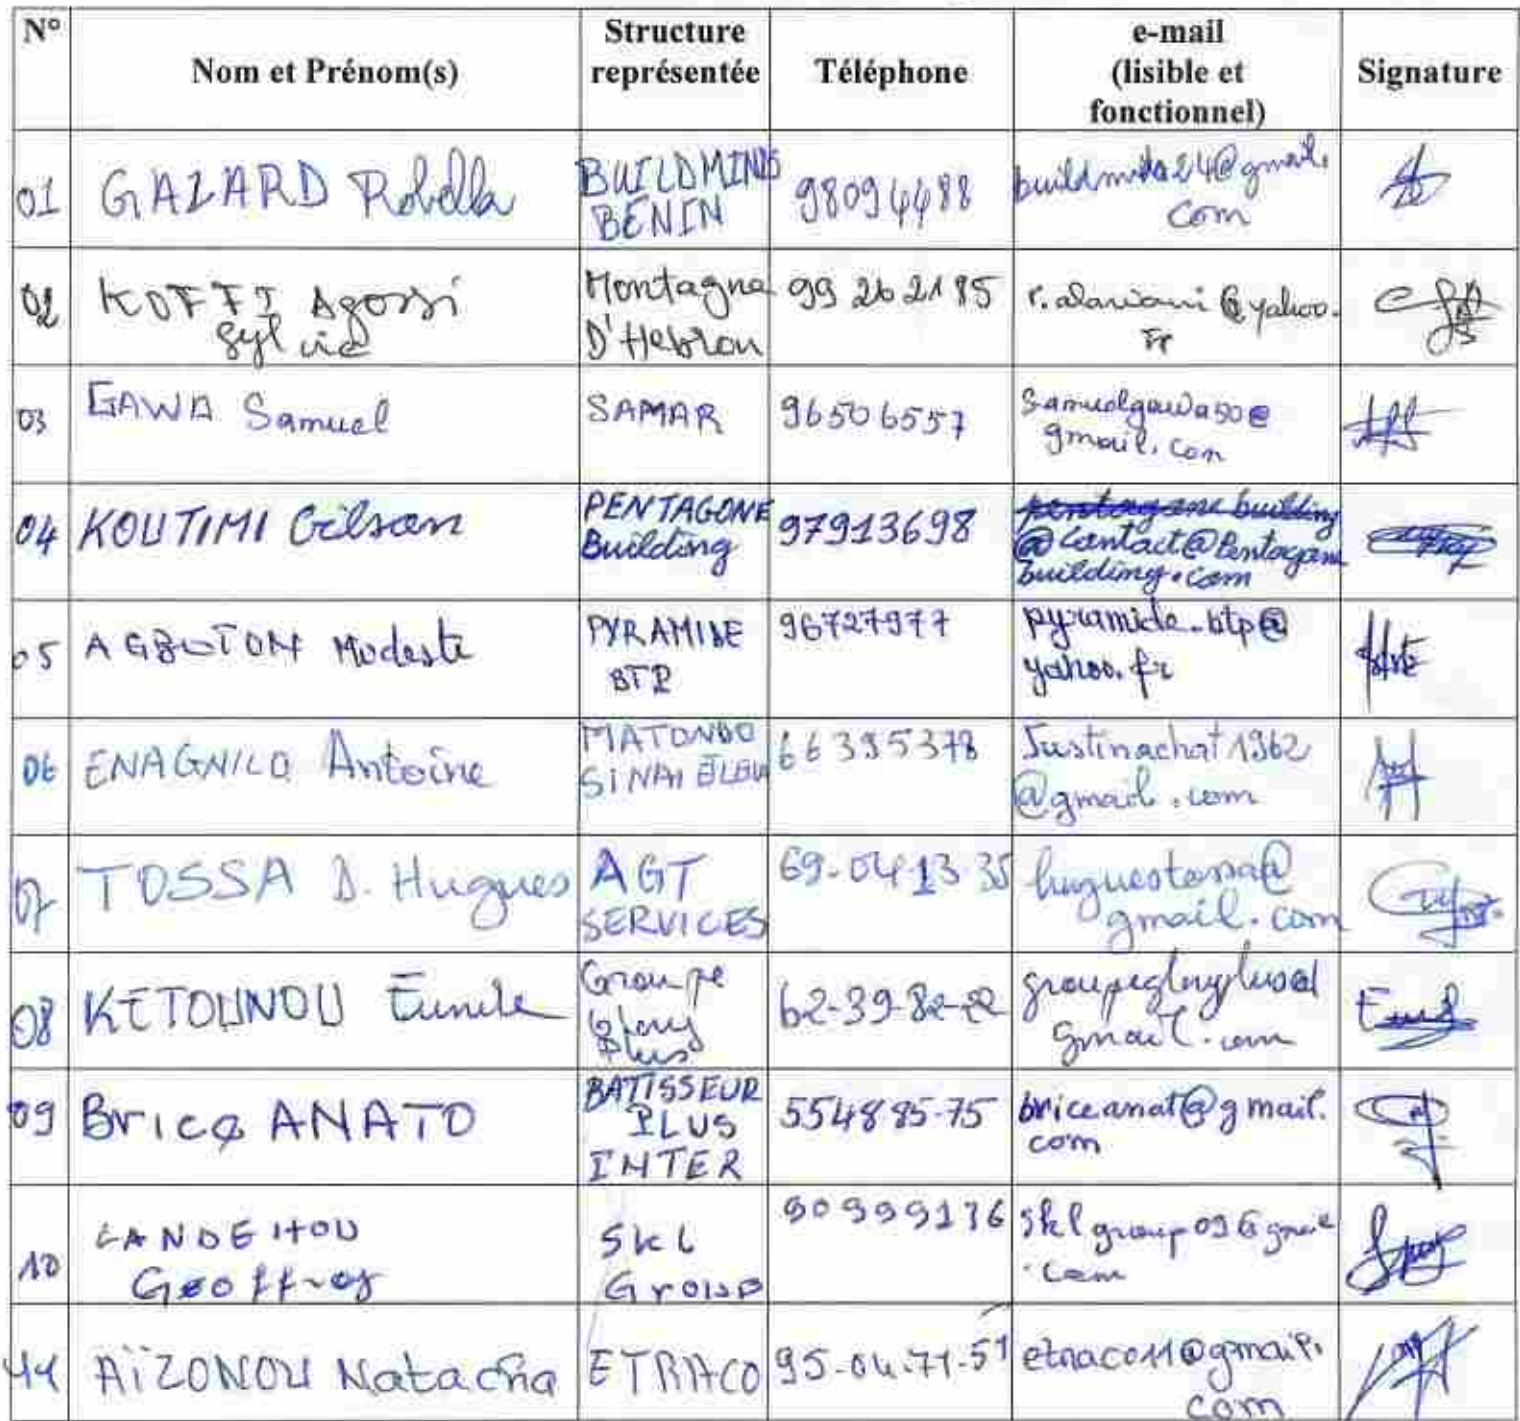 N° Nom et Prénom(s) Structure représentée Téléphone e-mail (lisible et fonctionnel) Signature
01 GAZARD Robella BUILDMINDS BENIN 98094488 buildminds24@gmail.com
02 KOFFI Agossi Sylvie Montagne D'Hebron 99 26 21 85 @yahoo.fr
03 GAWA Samuel SAMAR 96506557 samuelgawa50@gmail.com
04 KOUTIMI Gilson PENTAGONE Building 97913698 contact@Pentagone building.com
05 AGBOTON Modeste PYRAMIDE BTP 96727977 pyramide.btp@yahoo.fr
06 ENAGNILO Antoine MATONDO SINAI 66395378 Justinachat1962@gmail.com
07 TOSSA D. Hugues AGT SERVICES 69-04-13-35 huguestossa@gmail.com
08 KETOUNOU Eunile Groupe Glory Plus 62-39-82-22 groupegloryplus@gmail.com
09 Brice ANATO BATISSEUR PLUS INTER 554885-75 briceanat@gmail.com
10 LANDEHOU Geoffroy SKL Group 90999136 Sklgroup09@gmail.com
11 AÏZONOU Natacha ETRACO 95-04-71-51 etraco11@gmail.com